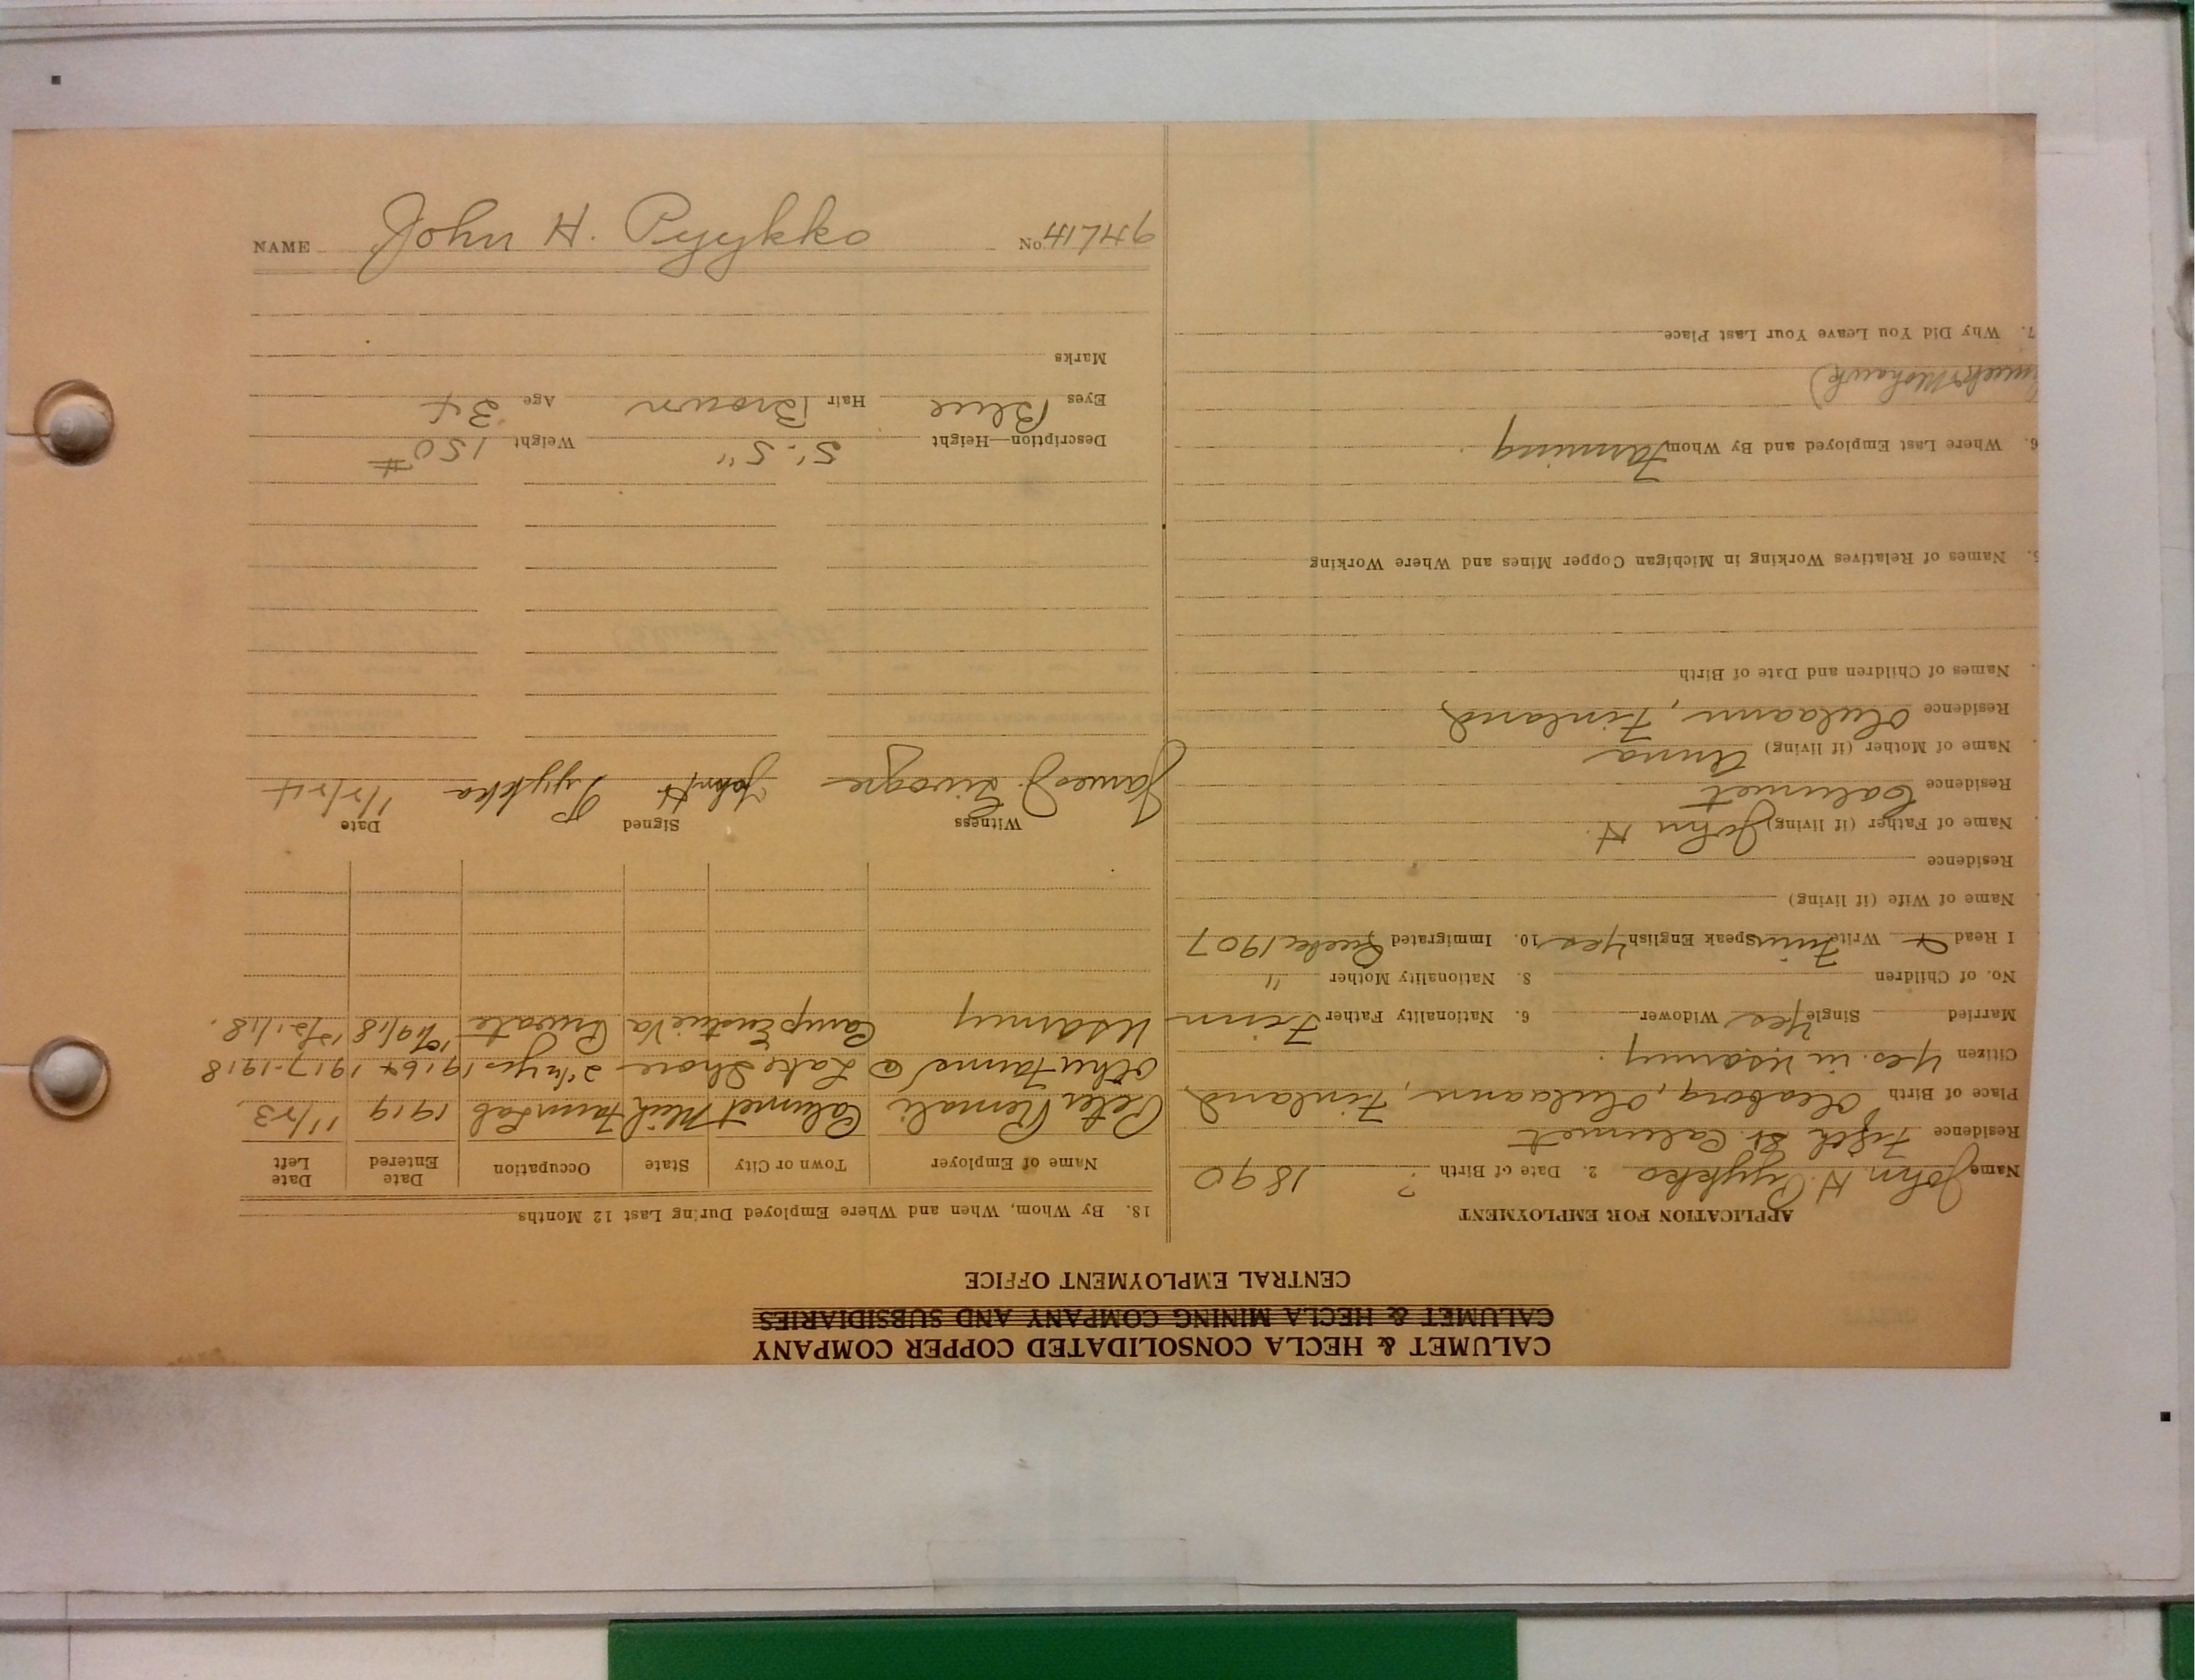 CALUMET & HECLA CONSOLIDATED COPPER COMPANY
CALUMET & HECLA MINING COMPANY AND SUBSIDIARIES
CENTRAL EMPLOYMENT OFFICE
APPLICATION FOR EMPLOYMENT
Name John H. Pyykko 2. Date of Birth ? 1890
Residence Fifth St. Calumet
Place of Birth Finland
Citizen Yes. in USarmy.
Married Single Yes Widower 6. Nationality Father Finn
No. of Children 8. Nationality Mother "
I Read + Write Finn Speak English Yes 10. Immigrated 1907
Name of Wife (if living)
Residence
Name of Father (if living) John H.
Residence Calumet
Name of Mother (if living) Anna
Residence Finland
Names of Children and Date of Birth
5. Names of Relatives Working in Michigan Copper Mines and Where Working
6. Where Last Employed and By Whom Farming
Mohawk)
7. Why Did You Leave Your Last Place
18. By Whom, When and Where Employed During Last 12 Months
Name of Employer Town or City State Occupation Date Entered Date Left
Peter Calumet Mich Farm Lab 1919 11/23.
Other Farms @ Lake Shore 2 1/2 yrs 1917-1918
USarmy Camp Va Private 12/21/18.
Witness Signed Date
James J. John H Pyykko 1/2/24
Description—Height 5'-5" Weight 150#
Eyes Blue Hair Brown Age 34
Marks
NAME John H. Pyykko No. 41746